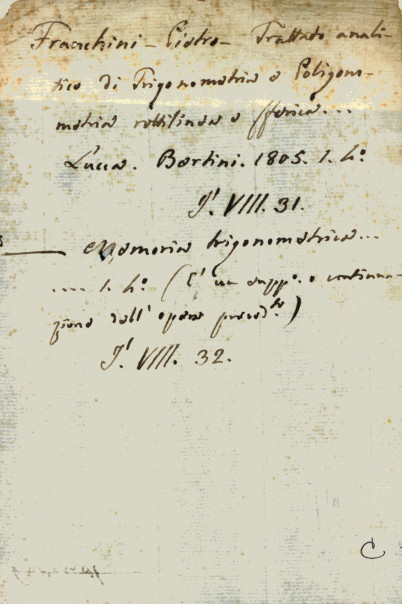 Franchini - Pietro - Trattato anali-
tico di Trigonometria e Poligono-
metria rettilinea e sferica...
Lucca. Bertini. 1805. 1. 4°
I' VIII. 31.
—— Memoria trigonometrica...
.... 1. 4° (E' un supp°. o continua-
zione dell' opera preced.te)
I' VIII. 32.
C